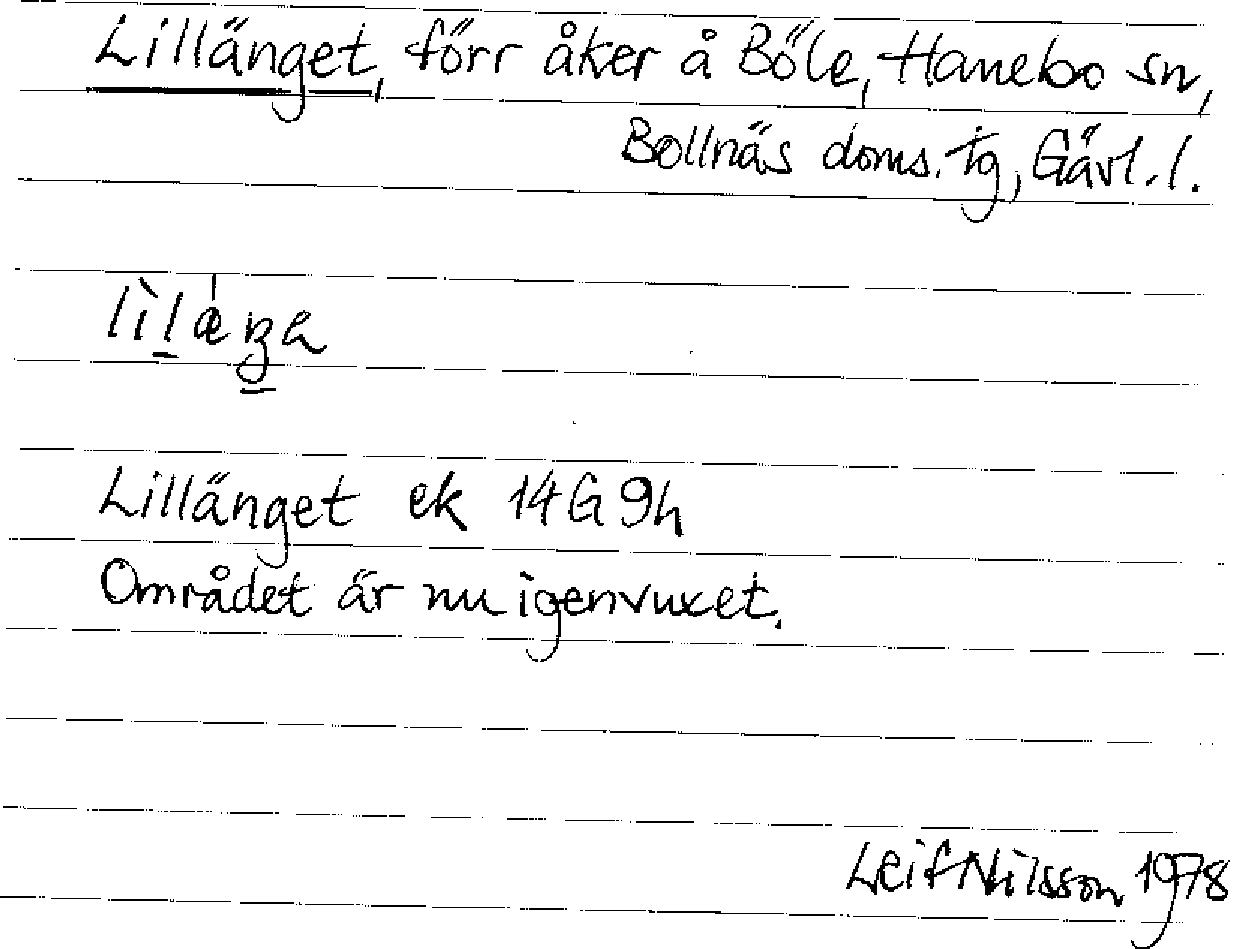 Lillänget, förr åker å Böle, Hanebo sn,
Bollnäs doms. tg, Gävl. l.
Lillänget ek 14G 9h
Området är nu igenvuxet.
Leif Nilsson 1978